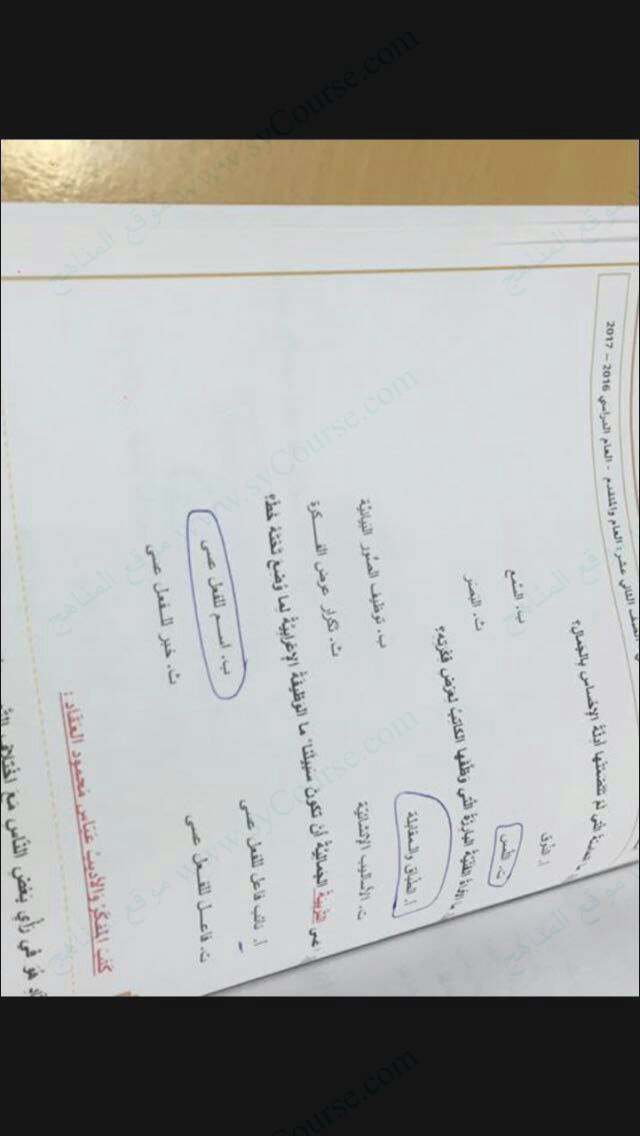 الصف الثاني عشر: العام والمتقدم - العام الدراسي 2016 – 2017
التي لم تتضمنها أدلة الإحساس بالجمال؟
أ. الذوق
ب. السمع
ت. اللمس
ث. البصر
الأداة الفنية البارزة التي وظفها الكاتب لعرض فكرته؟
أ. الطباق والمقابلة
ب. توظيف الصور البيانية
ت. الأساليب الإنشائية
ث. تكرار عرض الفكرة
عسى التربية الجمالية أن تكون سبيلنا" ما الوظيفة الإعرابية لما وضع تحته خط؟
أ. نائب فاعل للفعل عسى
ب. اسم للفعل عسى
ت. فاعل للفعل عسى
ث. خبر للفعل عسى
كتب المفكر والأديب عباس محمود العقاد:
هو في رأي بعض الناس مع اختلاف
موقع المناهج www.syCourse.com